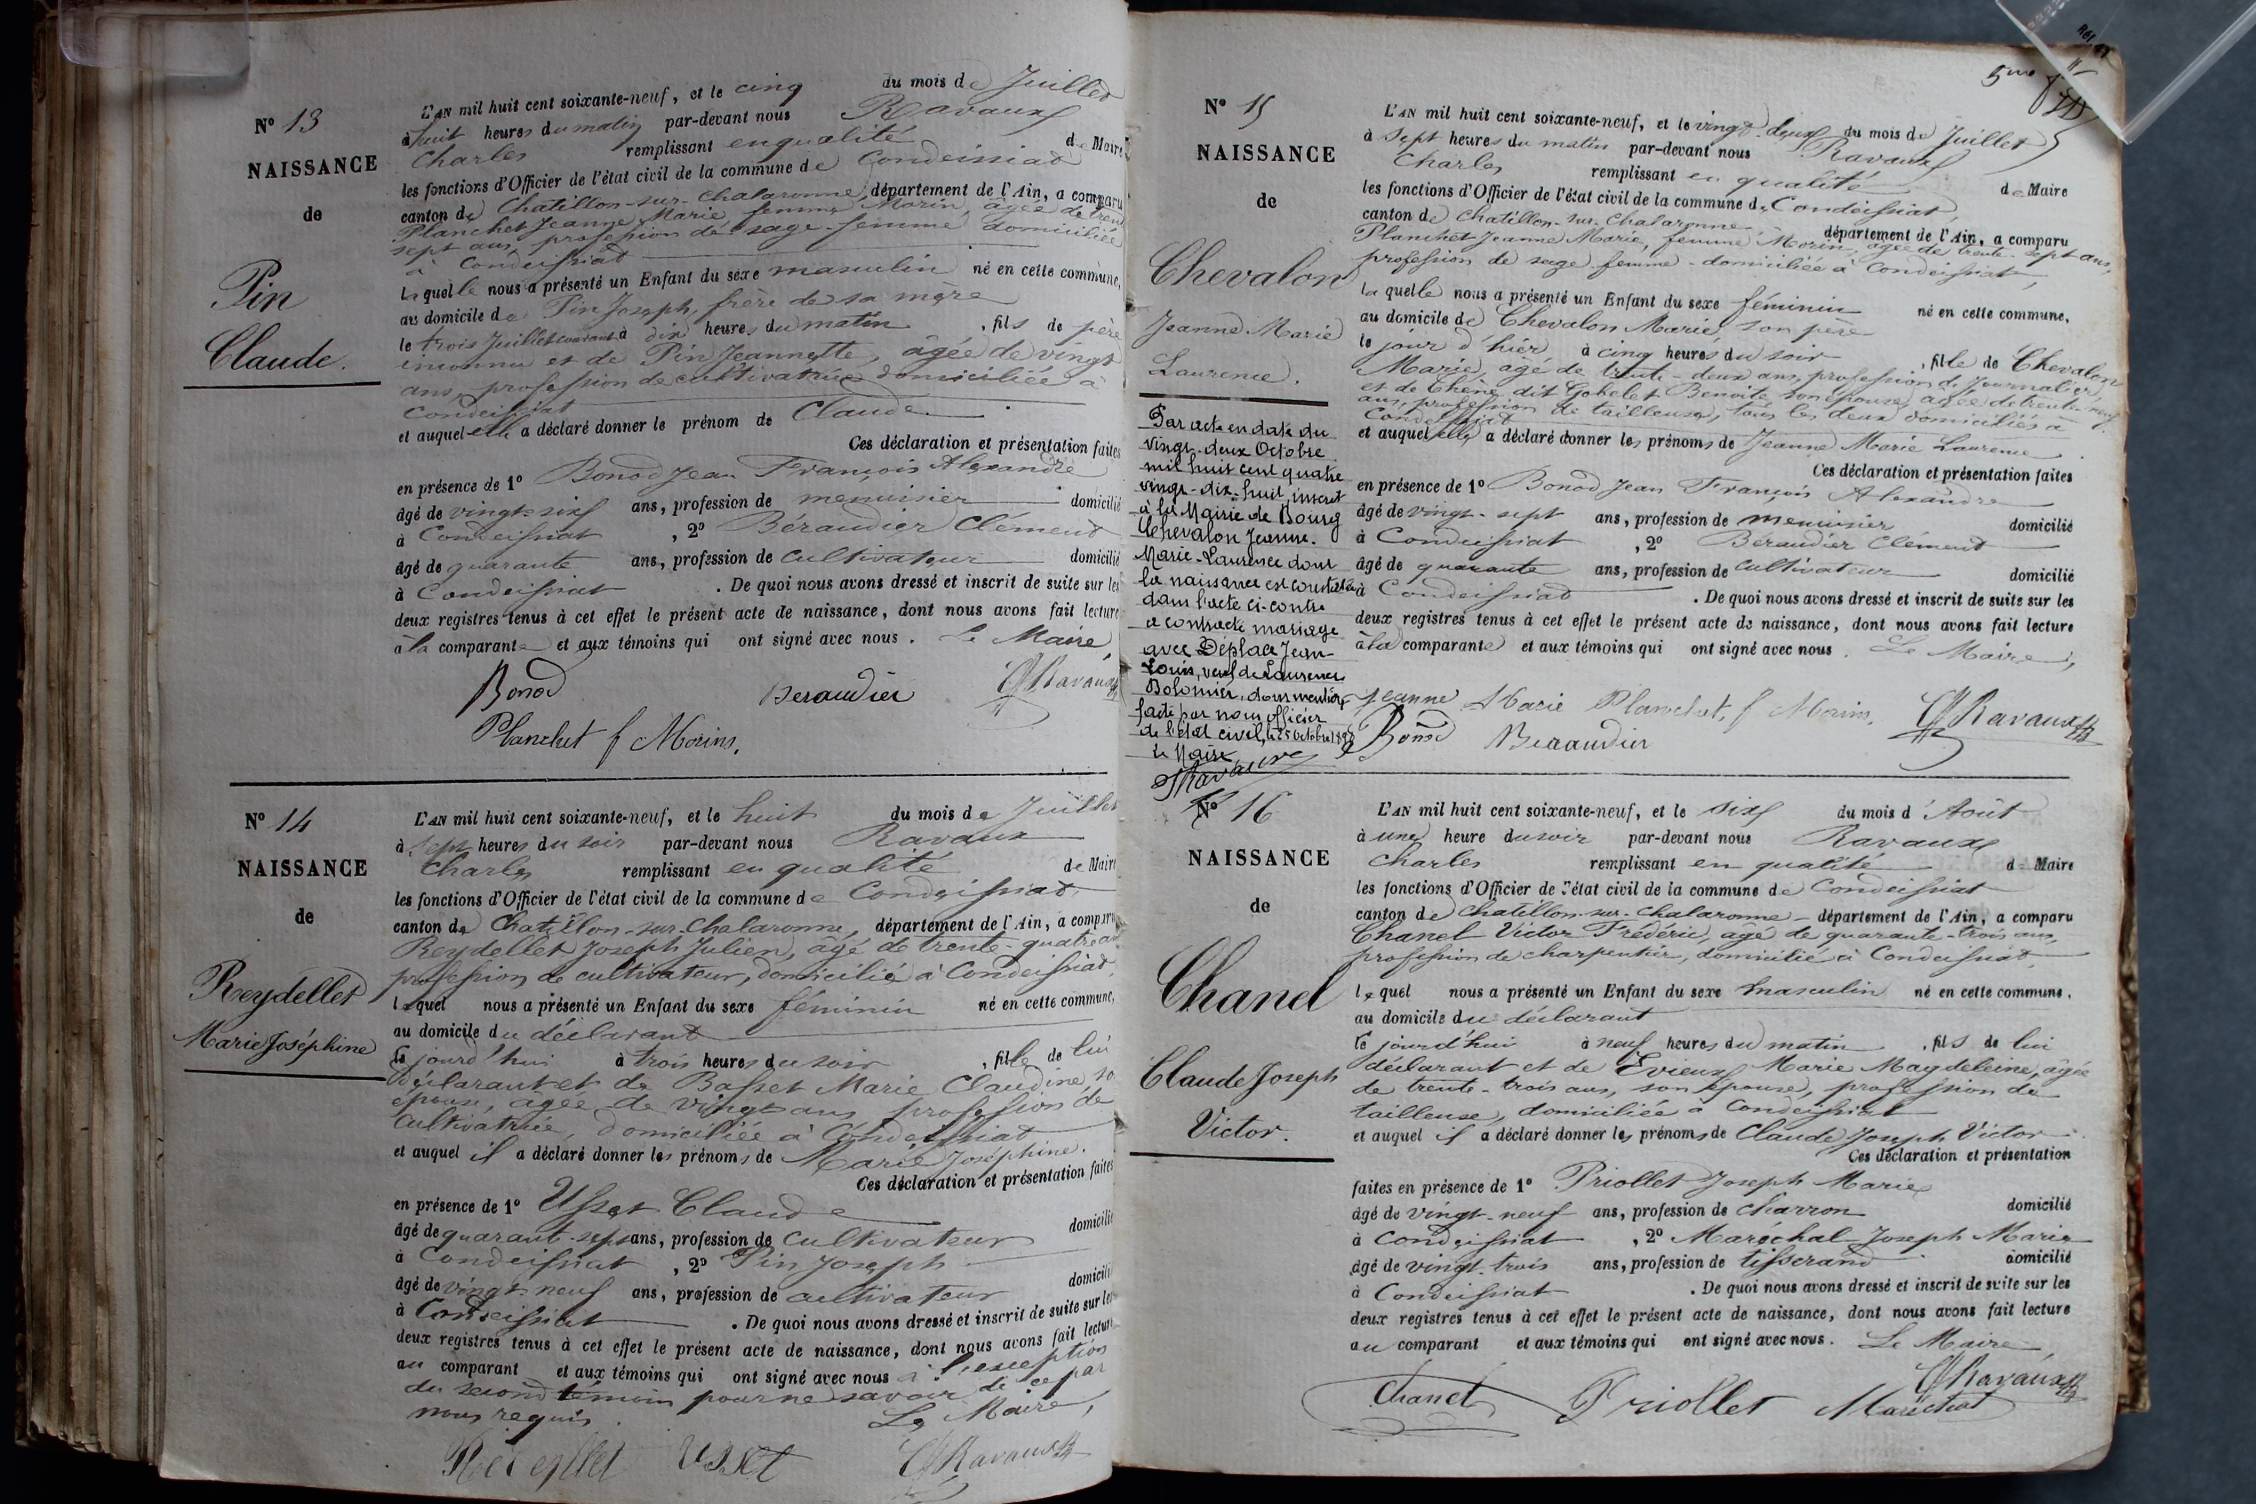 N° 13
NAISSANCE
de
Pin
Claude.
L'AN mil huit cent soixante-neuf, et le cinq du mois de Juillet
à huit heures du matin par-devant nous Ravaux
Charles remplissant en qualité de Maire
les fonctions d'Officier de l'état civil de la commune de Condeissiat
canton de Chatillon-sur-Chalaronne, département de l'Ain, a comparu
Planchet Jeanne Marie, femme Morin, âgée de trente
sept ans, profession de sage-femme domiciliée
à Condeissiat
laquelle nous a présenté un Enfant du sexe masculin né en cette commune,
au domicile de Pin Joseph, frère de sa mère
le trois Juillet courant à dix heures du matin, fils de père
inconnu et de Pin Jeannette, âgée de vingt
ans, profession de cultivatrice domiciliée à
Condeissiat
et auquel elle a déclaré donner le prénom de Claude
Ces déclaration et présentation faites
en présence de 1° Bonod Jean François Alexandre
âgé de vingt-six ans, profession de menuisier domicilié
à Condeissiat, 2° Béraudier Clément
âgé de quarante ans, profession de cultivateur domicilié
à Condeissiat. De quoi nous avons dressé et inscrit de suite sur les
deux registres tenus à cet effet le présent acte de naissance, dont nous avons fait lecture
à la comparante et aux témoins qui ont signé avec nous. Le Maire,
Bonod Beraudier Ravaux
Planchet f Morins.
N° 14
NAISSANCE
de
Reydellet
Marie Joséphine
L'AN mil huit cent soixante-neuf, et le huit du mois de Juillet
à sept heures du soir par-devant nous Ravaux
Charles remplissant en qualité de Maire
les fonctions d'Officier de l'état civil de la commune de Condeissiat
canton de Chatillon-sur-Chalaronne, département de l'Ain, a comparu
Reydellet Joseph Julien, âgé de trente-quatre ans
profession de cultivateur, domicilié à Condeissiat,
lequel nous a présenté un Enfant du sexe féminin né en cette commune,
au domicile du déclarant
le jourd'hui à trois heures du soir, fille de lui
déclarant et de Basset Marie Claudine, so
épouse, âgée de vingt ans profession de
cultivatrice, domiciliée à Condeissiat
et auquel il a déclaré donner les prénoms de Marie Joséphine.
Ces déclaration et présentation faites
en présence de 1° Usset Claude
âgé de quarante-sept ans, profession de cultivateur domicilié
à Condeissiat, 2° Pin Joseph
âgé de vingt-neuf ans, profession de cultivateur domicilié
à Condeissiat. De quoi nous avons dressé et inscrit de suite sur les
deux registres tenus à cet effet le présent acte de naissance, dont nous avons fait lecture
au comparant et aux témoins qui ont signé avec nous à l'exception
du second témoin pour ne savoir de ce par
nous requis. Le Maire,
Usset Ravaux
5me
N° 15
NAISSANCE
de
Chevalon
Jeanne Marie
Laurence.
Par acte en date du
vingt-deux Octobre
mil huit cent quatre
vingt-dix-huit, inscrit
à la Mairie de Bourg
Chevalon Jeanne-
Marie-Laurence dont
la naissance est constatée
dans l'acte ci-contre
a contracté mariage
avec Déplace Jean-
Louis, veuf de Laurence
Bolomier, dont mention
faite par nous officier
de l'état civil, le 25 Octobre 1898
Le Maire
Ravaux
L'AN mil huit cent soixante-neuf, et le vingt-deux du mois de Juillet
à sept heures du matin par-devant nous Ravaux
Charles remplissant en qualité de Maire
les fonctions d'Officier de l'état civil de la commune de Condeissiat,
canton de Chatillon-sur-Chalaronne département de l'Ain, a comparu
Planchet Jeanne Marie, femme Morin, âgée de trente-sept ans,
profession de sage-femme-domiciliée à Condeissiat,
laquelle nous a présenté un Enfant du sexe féminin né en cette commune,
au domicile de Chevalon Marie, son père
le jour d'hier à cinq heures du soir, fille de Chevalon
Marie, âgé de trente-deux ans, profession de journalier,
et de Chêne dit Gobelet Benoite, son épouse, âgée de trente-neuf
ans, profession de tailleuse, tous les deux domiciliés à
Condeissiat
et auquel elle a déclaré donner les prénoms de Jeanne Marie Laurence
Ces déclaration et présentation faites
en présence de 1° Bonod Jean François Alexandre
âgé de vingt-sept ans, profession de menuisier domicilié
à Condeissiat, 2° Béraudier Clément
âgé de quarante ans, profession de cultivateur domicilié
à Condeissiat. De quoi nous avons dressé et inscrit de suite sur les
deux registres tenus à cet effet le présent acte de naissance, dont nous avons fait lecture
à la comparante et aux témoins qui ont signé avec nous. Le Maire,
Jeanne Marie Planchet, f Morins, Ravaux
Bonod Beraudier
N° 16
NAISSANCE
de
Chanel
Claude Joseph
Victor.
L'AN mil huit cent soixante-neuf, et le six du mois d'Août
à une heure du soir par-devant nous Ravaux
Charles remplissant en qualité de Maire
les fonctions d'Officier de l'état civil de la commune de Condeissiat
canton de Chatillon-sur-Chalaronne-département de l'Ain, a comparu
Chanel Victor Frédéric, âgé de quarante-trois ans,
profession de charpentier, domicilié à Condeissiat,
lequel nous a présenté un Enfant du sexe masculin né en cette commune,
au domicile du déclarant
le jourd'hui à neuf heures du matin, fils de lui
déclarant et de Evieux Marie Magdeleine, âgée
de trente-trois ans, son épouse, profession de
tailleuse, domiciliée à Condeissiat
et auquel il a déclaré donner les prénoms de Claude Joseph Victor.
Ces déclaration et présentation
faites en présence de 1° Priollet Joseph Marie
âgé de vingt-neuf ans, profession de charron domicilié
à Condeissiat, 2° Maréchal Joseph Marie
âgé de vingt-trois ans, profession de tisserand domicilié
à Condeissiat. De quoi nous avons dressé et inscrit de suite sur les
deux registres tenus à cet effet le présent acte de naissance, dont nous avons fait lecture
au comparant et aux témoins qui ont signé avec nous. Le Maire,
Ravaux
Chanel Priollet Maréchal